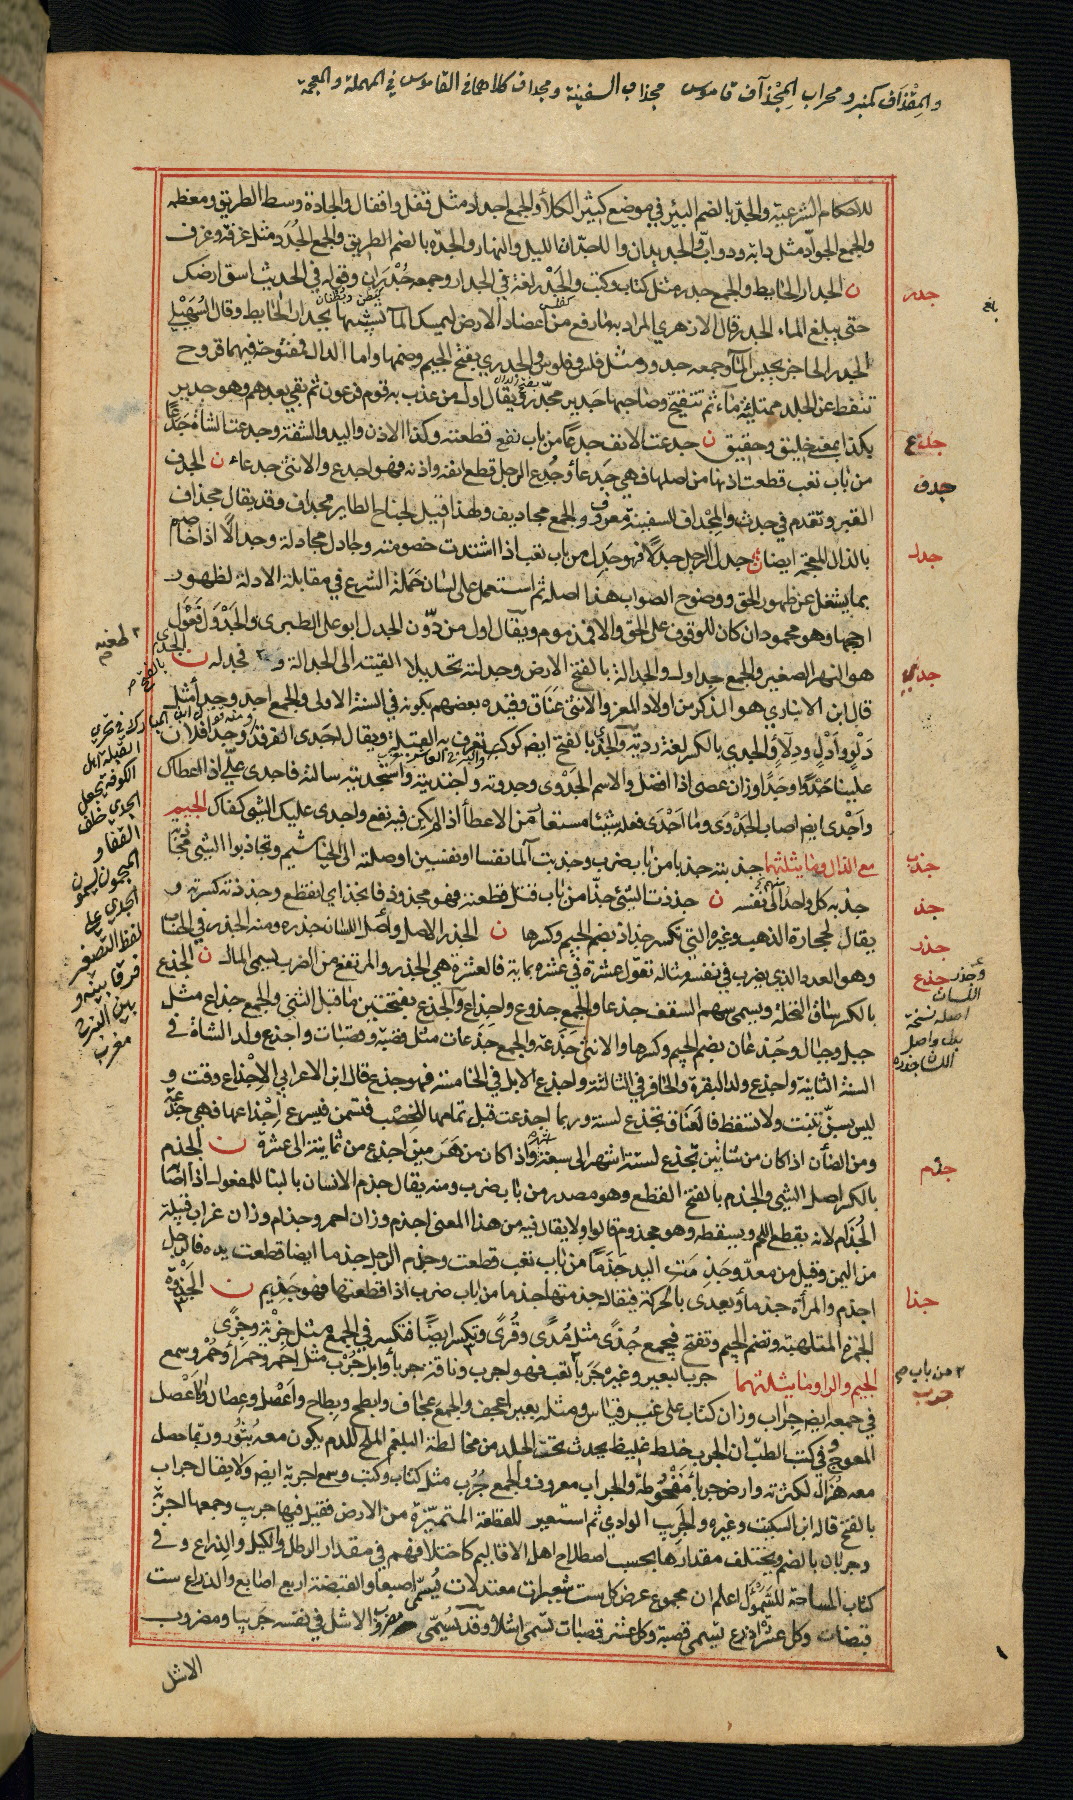 والمِقْذَاف كمنبر ومحراب المِجْذاف قاموس مجذاب السفينة ومجداف كلاهما في القاموس في المهملة والمعجمة
للاحكام الشرعية والجدّ بالضم البئر في موضع كثير الكلأ والجمع اجداد مثل قفل واقفال والجادة وسط الطريق ومعظمه
والجمع الجوادّ مثل دابة ودوابّ والجديدان والاجدّان الليل والنهار والجدّه بالضم الطريق والجمع الجُدَد مثل غرفة وغرف
جدر
ن الجدار الحايط والجمع جدر مثل كتاب وكتب والجَدْر لغة في الجدار وجمعه جُدْرَان وقوله في الحديث اسق ارضك
حتى يبلغ الماء الجدر قال الازهري المراد به ما رفع من اعضاد الارض ليمسك الماء تشبيها بجدار الحايط وقال السُهَيْلي
الجدر الحاجز يحبس الماء وجمعه جدور مثل فلس وفلوس والجدري بفتح الجيم وضمها واما الدال فمفتوحة فيهما قروح
تنفط عن الجلد ممتلئة ماء ثم تنفتح وصاحبها جدير مجدّر ويقال اول من عذب به قوم فرعون ثم بقي بعدهم وهو جدير
جدع
بكذا بمعنى خليق وحقيق ن جدعت الانف جدعًا من باب نفع قطعته وكذا الاذن واليد والشفة وجدعت الشاة جَدَعًا
جدف
من باب تعب قطعت اذنها من اصلها فهي جَدعاء وجُدِع الرجل قطع انفه واذنه فهو اجدع والانثى جدعاء ن الجدف
القبر وتقدم في جدث والمِجْداف للسفينة معروف والجمع مجاديف ولهذا قيل لجناح الطاير مجداف وقد يقال مجذاف
جدل
بالذال المعجمة ايضا ن جدل الرجل جدلًا فهو جَدِل من باب تعب اذا اشتدت خصومته وجادل مجادلة وجدالًا اذا خاصم
بما يشغل عن ظهور الحق ووضوح الصواب هذا اصله ثم استعمل على لسان حَمَلة الشرع في مقابلة الادلة لظهور
ارجحها وهو محمود ان كان للوقوف على الحق والا فمذموم ويقال اول من دوّن الجدل ابو علي الطبري والجَدْوَل فَعْوَل
هو النهر الصغير والجمع جداول والجدالة بالفتح الارض وجدلته تجديلا القيته الى الجدالة و فجدله ن الجدي بالفتح
جدي
قال ابن الانباري هو الذكر من اولاد المعز والانثى عَنَاق وقيده بعضهم بكونه في السنة الاولى والجمع اجدٍ وجداء مثل
دَلْو وأدْلٍ ودِلَاءٍ والجدي بالكسر لغة ردية والجدي بالفتح ايضا كوكب تعرف به القبلة ويقال له جدي الفرقد وجدا فلان
علينا جَدْوًا وجَدًا وزان عصى اذا افضل والاسم الجَدْوى وجدوته واجتديته واستجديته سالته فاجدى عليّ اذا اعطاك
واَجْدى ايضا اصاب الجَدْوَى وما اجْدَى فعله شيئا مستعار من الاعطاء اذا لم يكن فيه نفع واجدى عليك الشي كفاك الجيم
جذب
مع الذال وما يثلثهما جذبته جذبا من باب ضرب وجذبت الماء نفسا او نفسين اوصلته الى الخياشيم وتجاذبوا الشي مجاذبة
جذ
جذبه كل واحد الى نفسه ن جذذت الشي جذّا من باب قتل قطعته فهو مجذوذ فانجذ اي انقطع وجذذته كسرته و
جذر
يقال لحجارة الذهب وغيره التي تكسر جذاذ بضم الجيم وكسرها ن الجذر الاصل واصل اللسان جذره ومنه الجذر في الحساب
جذع
وهو العدد الذي يضرب في نفسه مثاله تقول عشرة في عشرة بماية فالعشرة هي الجذر والمرتفع من الضرب يسمى المال ن الجذع
بالكسر ساق النخلة ويسمى سهم السقف جذعا والجمع جذوع واجذاع والجَذَع بفتحتين ما قبل الثني والجمع جذاع مثل
جبل وجبال وجُذعان بضم الجيم وكسرها والانثى جَذَعة والجمع جَذَعات مثل قصبة وقصبات واجذع ولد الشاة في
السنة الثانية واجذع ولد البقرة والحافر في الثالثة واجذع الابل في الخامسة فهو جذع قال ابن الاعرابي الاِجْذاع وقت و
ليس بسنّ تنبت ولا تسقط فالعَنَاق تجذع لسنة وربما اجذعت قبل تمامها للخصْب فتسمن فيسرع اِجْذاعها فهي جذعة
جذم
ومن الضأن اذا كان من شابّين تجذع لستة اشهر الى سبعة واذا كان من هَرَمين اجذع من ثمانية الى عشرة ن الجذم
بالكسر اصل الشي والجذم بالفتح القطع وهو مصدر من باب ضرب ومنه يقال جذم الانسان بالبنا للمفعول اذا اصابه
الجُذام لانه يقطع اللحم ويسقطه وهو مجذوم قالوا ولا يقال فيه من هذا المعنى اجذم وزان احمر وجذام وزان غراب قبيلة
من اليمن وقيل من معدّ وجَذِمَت اليد جَذَمًا من باب تعب قطعت وجذم الرجل جذما ايضا قطعت يده فالرجل
جذا
اجذم والمرأة جذماء ويعدى بالحركة فيقال جذمتها جذما من باب ضرب اذا قطعتها فهو جَذيم ن الجَذْوَة
الجمرة الملتهبة وتضم الجيم وتفتح فيجمع جُذًى مثل مُدًى وقُرًى وتكسر ايضًا فتكسر في الجمع مثل جِزْية وجِزًى
جرب
الجيم والرا وما يثلثهما جرب البعير وغيره جَرَبًا تعب فهو اجرب وناقة جرباء وابل جُرْب مثل احمر وحمراء وحُمْر وسمع
في جمعه ايضا جِرَاب وزان كتاب على غير قياس ومثله بعير اعجف والجمع عجاف وابطح وبطاح واَعْصل وعِصال والاعْصل
المعوج وفي كتب الطب ان الجرب خلط غليظ يحدث تحت الجلد من مخالطة البلغم الملح للدم يكون معه بُثُور وربما حصل
معه هُزَال لكثرته وارض جرباء مَقْحُوطة والجراب معروف والجمع جُرُب مثل كتاب وكتب وسمع اجربة ايضا ولا يقال جراب
بالفتح قاله ابن السكيت وغيره والجَرِيب الوادي ثم استعير للقطعة المتميّزة من الارض فقيل فيها جريب وجمعها اجربة
وجربان بالضم ويختلف مقدارها بحسب اصطلاح اهل الاقاليم كاختلافهم في مقدار الرطل والكيل والذراع و في
كتاب المساحة للسَّمَوْءَل اعلم ان مجموع عرض كل ست شعيرات معتدلات يُسمّى اصبعا والقبضة اربع اصابع والذراع ست
قبضات وكل عشرة اذرع تسمى قصبة وكل عشر قصبات تسمى اشلا وقد يُسَمّى مضروب الاشل في نفسه جريبا ومضروب
الاشل